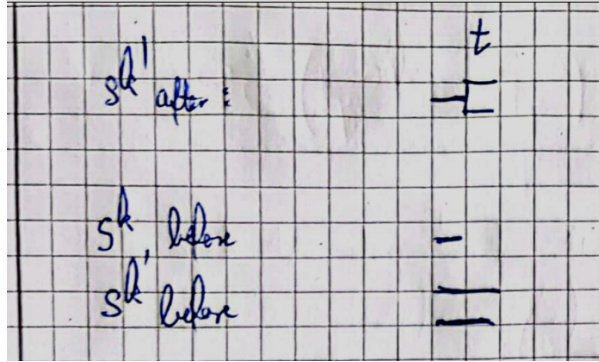 t
sk' after :
sk before
sk' before